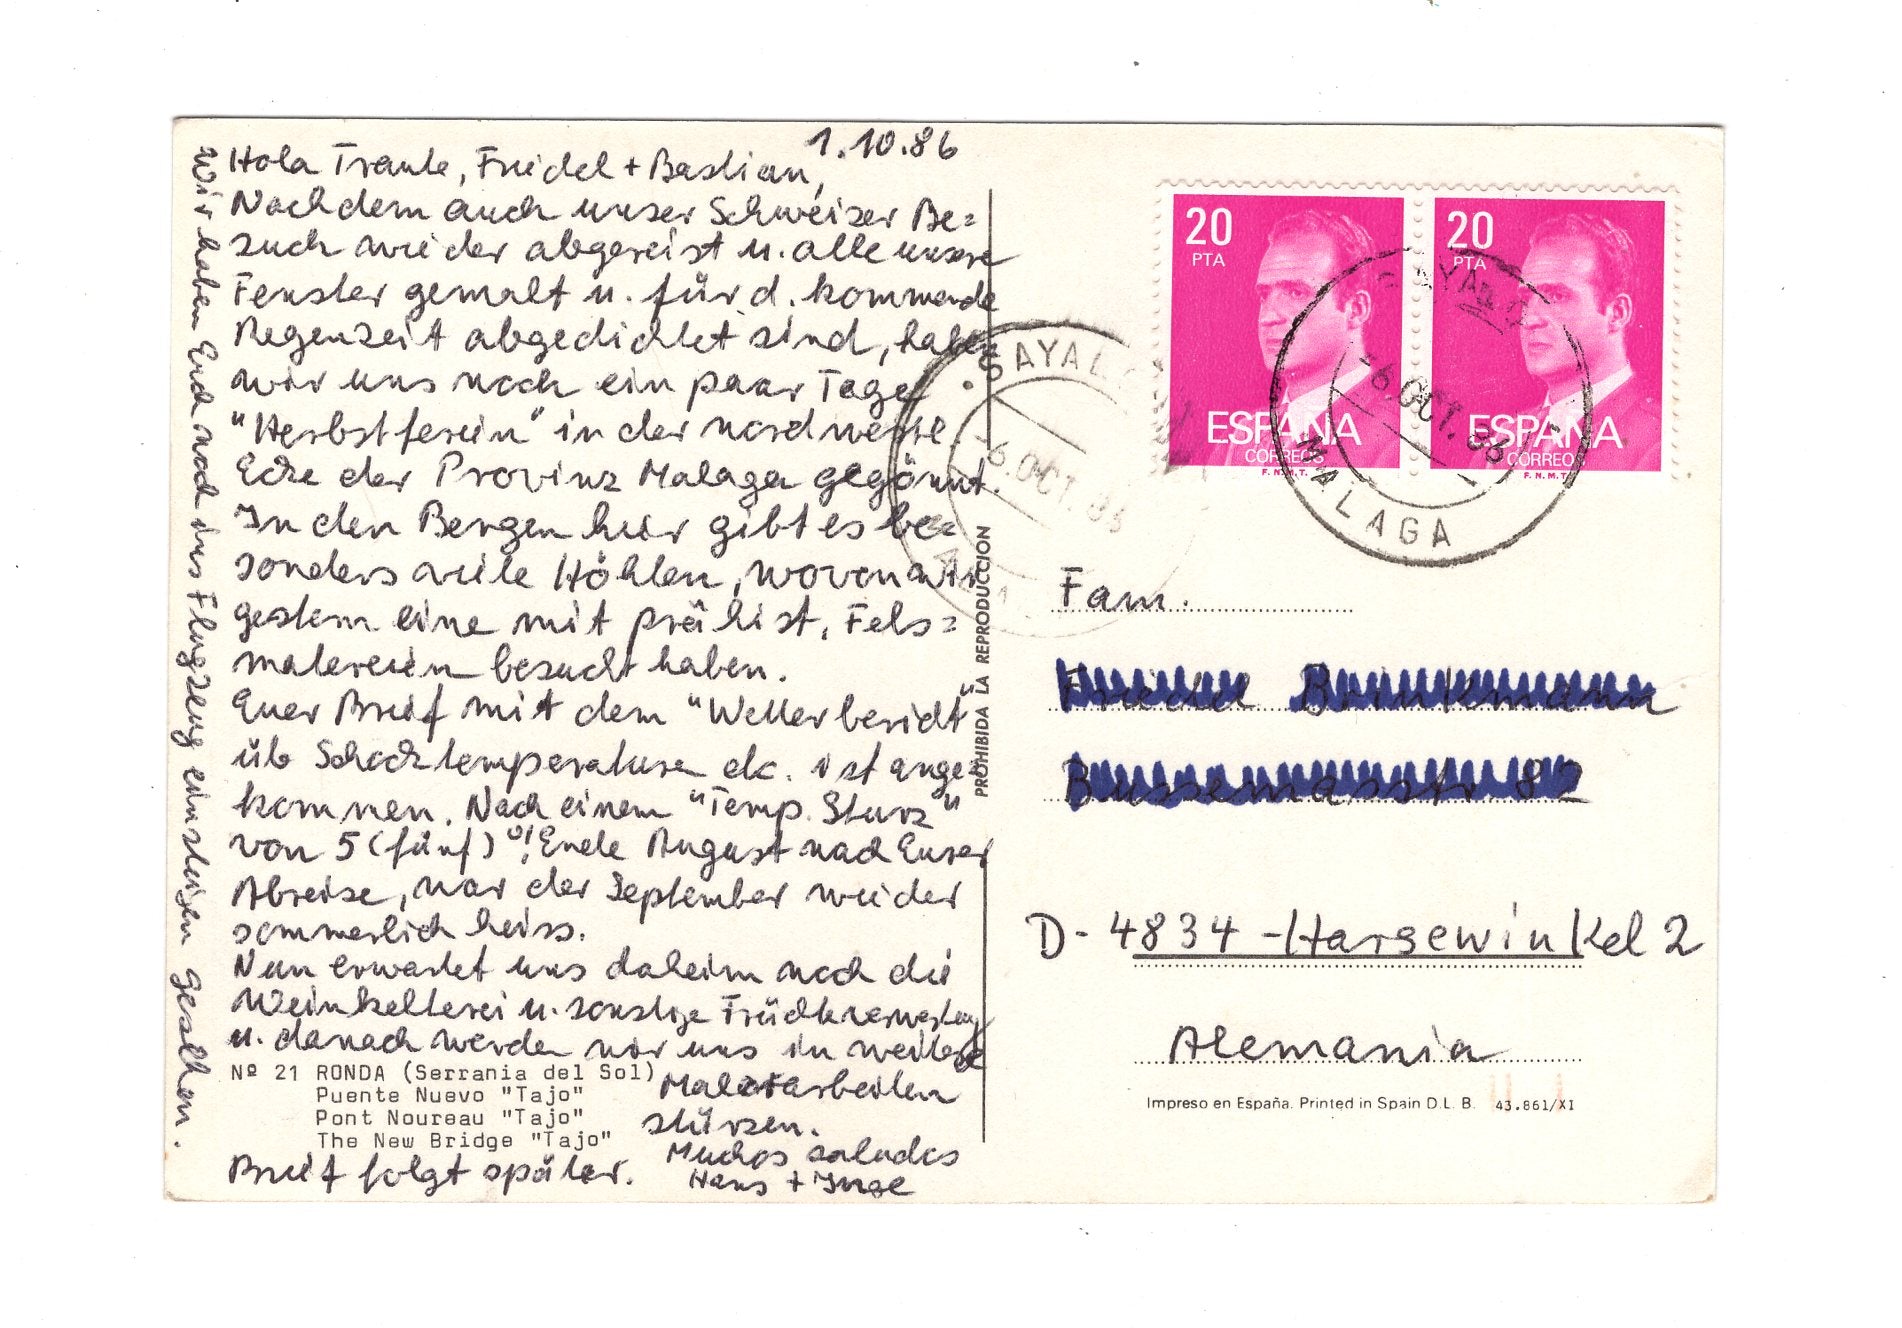 1.10.86
Hola Traute, Friedel + Bastian,
Nachdem auch unser Schweizer Be=
such wieder abgereist u. alle unsere
Fenster gemalt u. für d. kommende
Regenzeit abgedichtet sind, haben
wir uns noch ein paar Tage
"Herbstferien" in der nordwestl.
Ecke der Provinz Malaga gegönnt.
In den Bergen hier gibt es be=
sonders viele Höhlen, wovon wir
gestern eine mit prähist. Fels=
malereien besucht haben.
Euer Brief mit dem "Wetterbericht"
üb Schocktemperaturen etc. ist ange=
kommen. Nach einem "Temp. Sturz"
von 5 (fünf)°! Ende August nach Eurer
Abreise, war der September wieder
sommerlich heiss.
Nun erwartet uns daheim noch die
Weinkellerei u. sonstige Früchteverwertung
u. danach werden wir uns in weitere
Malerarbeiten
stürzen.
Muchos saludos
Hans + Inge
Brief folgt später.
Wir haben Erich noch ins Flugzeug einsteigen gesehen.
Nº 21 RONDA (Serrania del Sol)
Puente Nuevo "Tajo"
Pont Noureau "Tajo"
The New Bridge "Tajo"
PROHIBIDA LA REPRODUCCION
20
PTA
ESPAÑA
CORREOS
F.N.M.T.
20
PTA
ESPAÑA
CORREOS
F.N.M.T.
-6.OCT.86
MALAGA
SAYAL
-6.OCT.86
Fam.
Friedel Brinkmann
82
D-4834 Harsewinkel 2
Alemania
Impreso en España. Printed in Spain D.L. B. 43.861/XI